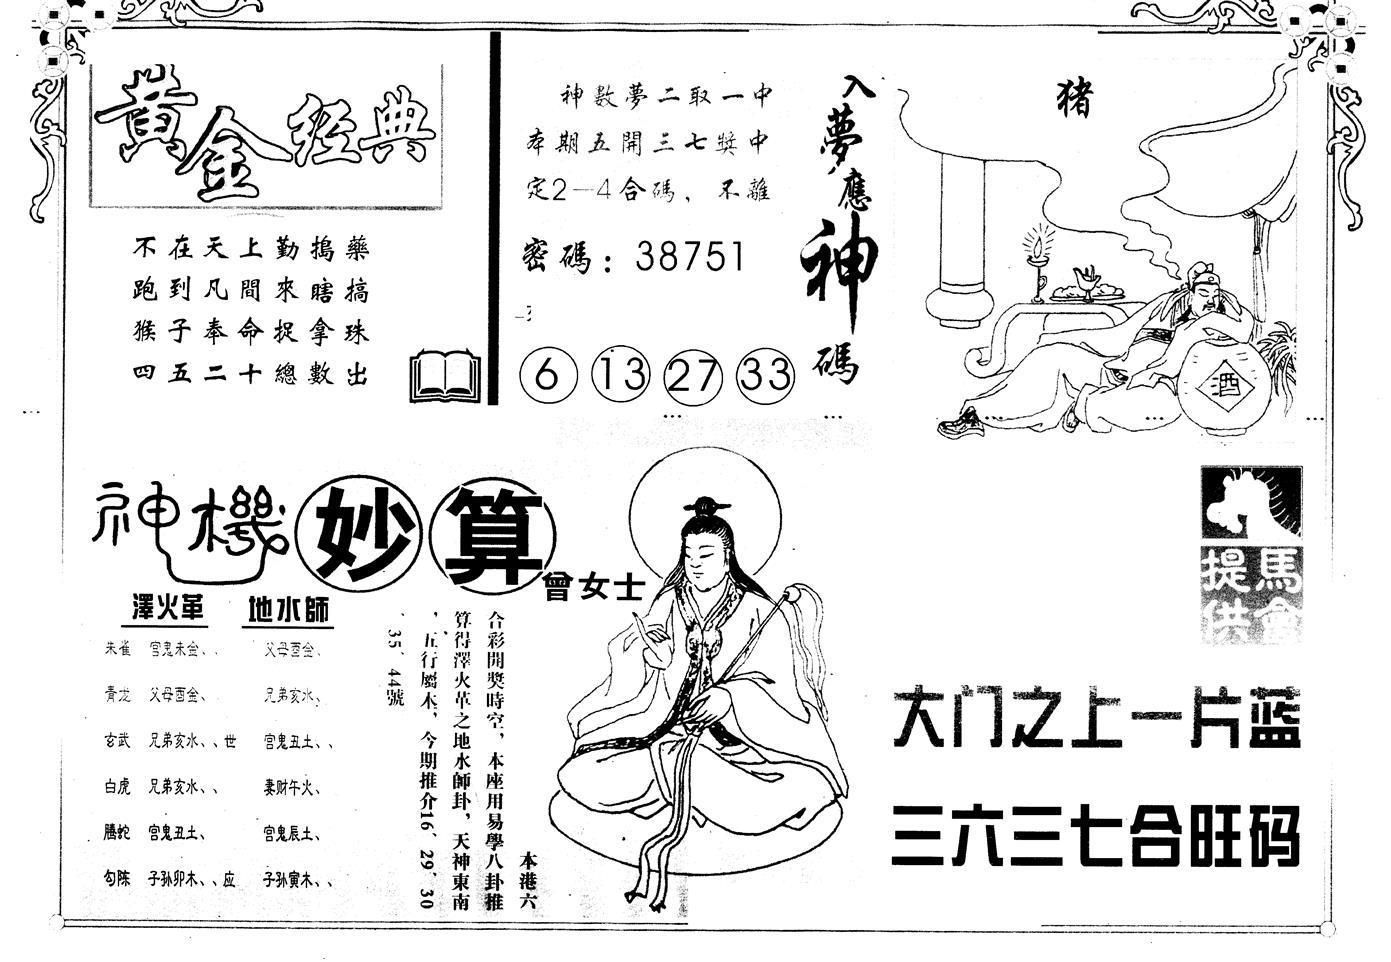 黃金经典
不在天上勤搗藥
跑到凡間來瞎搞
猴子奉命捉拿珠
四五二十總數出
神數夢二取一中
本期五開三七獎中
定2—4合碼，不離
密碼：38751
6 13 27 33
入夢應神碼
猪
酒
神機妙算
曾女士
澤火革 地水師
朱雀 官鬼未金、、 父母酉金、
青龙 父母酉金、 兄弟亥水、
玄武 兄弟亥水、、世 官鬼丑土、、
白虎 兄弟亥水、、 妻财午火、
腾蛇 官鬼丑土、 官鬼辰土、
勾陈 子孙卯木、、应 子孙寅木、、
本港六
合彩開獎時空，本座用易學八卦推
算得澤火革之地水師卦，天神東南
，五行屬木，今期推介16、29、30
、35、44號
馬會
提供
大门之上一片蓝
三六三七合旺码